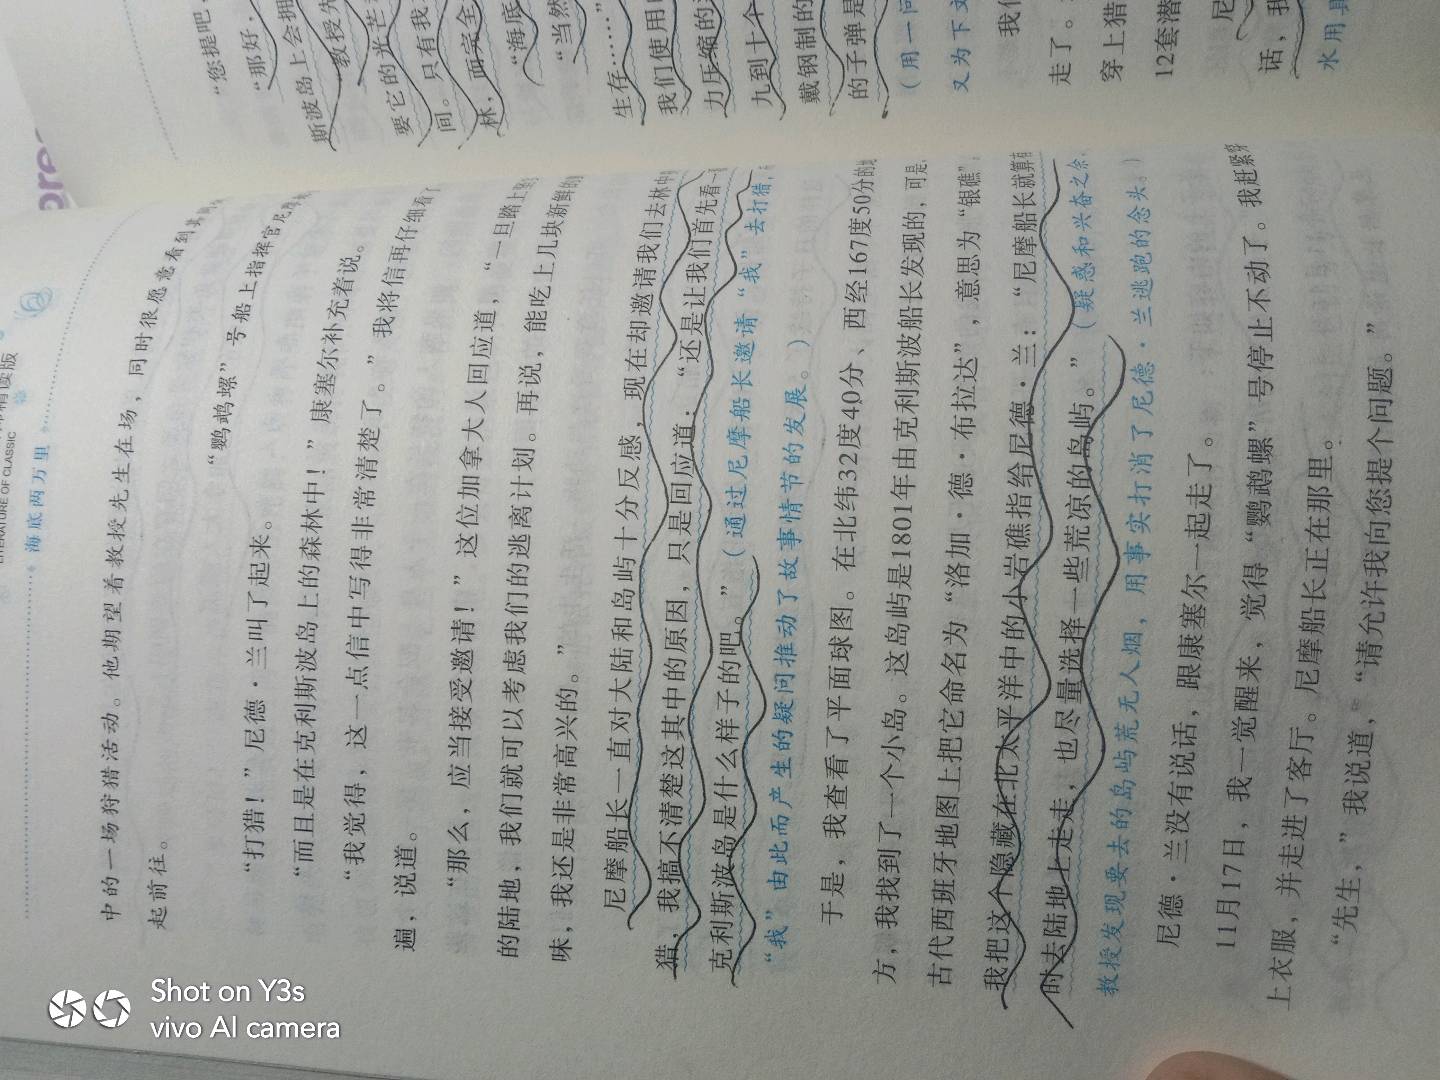 精读版
LITERATURE OF CLASSIC
海底两万里
中的一场狩猎活动。他期望着教授先生在场，同时很愿意看到其
“鹦鹉螺”号船上指挥官尼
起前往。
“打猎！”尼德·兰叫了起来。
“而且是在克利斯波岛上的森林中！”康塞尔补充着说。
“我觉得，这一点信中写得非常清楚了。”我将信再仔细看了
遍，说道。
“那么，应当接受邀请！”这位加拿大人回应道，“一旦踏上
的陆地，我们就可以考虑我们的逃离计划。再说，能吃上几块新鲜的
味，我还是非常高兴的。”
尼摩船长一直对大陆和岛屿十分反感，现在却邀请我们去林中
猎，我搞不清楚这其中的原因，只是回应道：“还是让我们首先看一
克利斯波岛是什么样子的吧。”（通过尼摩船长邀请“我”去打猎，
“我”由此而产生的疑问推动了故事情节的发展。）
于是，我查看了平面球图。在北纬32度40分、西经167度50分的
方，我找到了一个小岛。这岛屿是1801年由克利斯波船长发现的，可是
古代西班牙地图上把它命名为“洛加·德·布拉达”，意思为“银礁”
我把这个隐藏在北太平洋中的小岩礁指给尼德·兰：“尼摩船长就算
时去陆地上走走，也尽量选择一些荒凉的岛屿。”（疑惑和兴奋之余，
教授发现要去的岛屿荒无人烟，用事实打消了尼德·兰逃跑的念头。）
尼德·兰没有说话，跟康塞尔一起走了。
11月17日，我一觉醒来，觉得“鹦鹉螺”号停止不动了。我赶紧穿
上衣服，并走进了客厅。尼摩船长正在那里。
“先生，”我说道，“请允许我向您提个问题。”
“您提吧，
“那好，
斯波岛上会拥
教授先
要它的光
间。只有我
林，而完全
“海底
“当然
生存……”
我们使用
力压缩的
九到十个
戴钢制的
的子弹是
（用一问
又为下文
我们
走了。
穿上猎
12套潜
尼
话，我
水用具
Shot on Y3s
vivo AI camera